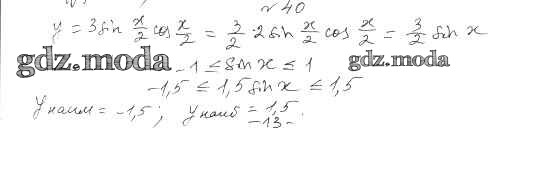 N 40
y = 3 sin x/2 cos x/2 = 3/2 · 2 sin x/2 cos x/2 = 3/2 sin x
gdz.moda -1 ≤ sin x ≤ 1 gdz.moda
-1,5 ≤ 1,5 sin x ≤ 1,5
y наим = -1,5; y наиб = 1,5.
-13-